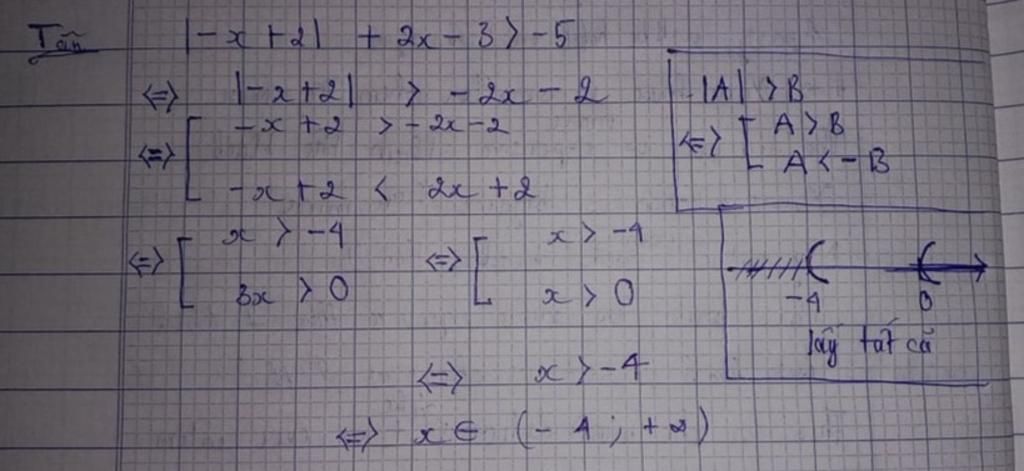 Tân
|-x+2| + 2x-3 > -5
<=> |-x+2| > -2x-2
<=> [ -x+2 > -2x-2
-x+2 < 2x+2
<=> [ x > -4
3x > 0
<=> [ x > -4
x > 0
<=> x > -4
<=> x ∈ (-4; +∞)
|A| > B
<=> [ A > B
A < -B
-4 0
lấy tất cả